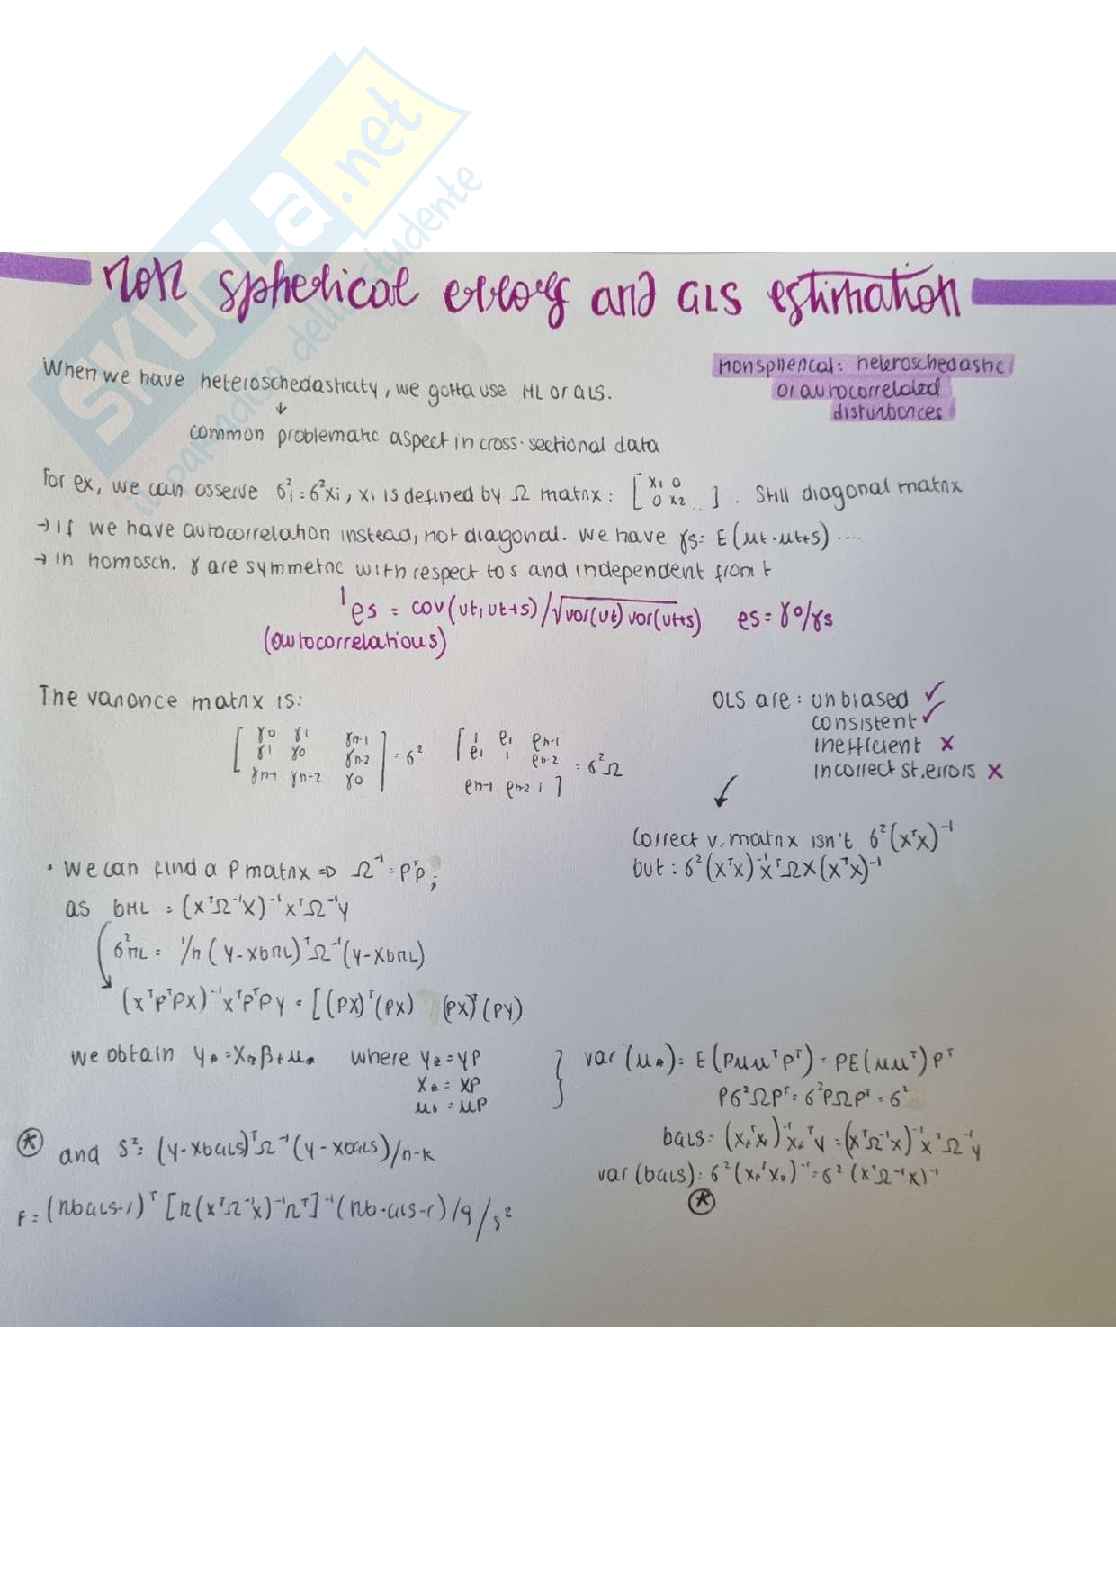 SKUOLA.net
il paradiso dello studente
non spherical errors and GLS estimation
When we have heteroschedasticity, we gotta use ML or GLS.
↓
common problematic aspect in cross-sectional data
nonspherical: heteroschedastic
or autocorrelated
disturbances
For ex, we can osserve σ²i = σ²xi, xi is defined by Ω matrix: [x1 0 0 x2 ...]. Still diagonal matrix
→ if we have autocorrelation instead, not diagonal. We have γs = E(μt·μt+s) ....
→ in homosch. γ are symmetric with respect to s and independent from t
ρs = cov(ut, ut+s)/√var(ut) var(ut+s) ρs = γ0/γs
(autocorrelations)
The variance matrix is:
[γ0 γ1 γn-1
γ1 γ0 γn-2
γn-1 γn-2 γ0] = σ² [1 ρ1 ρn-1
ρ1 1 ρn-2
ρn-1 ρn-2 1] = σ²Ω
OLS are: unbiased ✓
consistent ✓
inefficient ✗
incorrect st. errors ✗
Correct v. matrix isn't σ²(XᵀX)⁻¹
but: σ²(XᵀX)⁻¹XᵀΩX(XᵀX)⁻¹
• We can find a P matrix ⇒ Ω⁻¹ = PᵀP;
as bML = (XᵀΩ⁻¹X)⁻¹XᵀΩ⁻¹y
σ²ML = 1/n (y-XbML)ᵀΩ⁻¹(y-XbML)
(XᵀPᵀPX)⁻¹XᵀPᵀPy = [(PX)ᵀ(PX) (PX)ᵀ(PY)
we obtain y* = X*β+μ* where y* = yP
X* = XP
μ* = μP
var(μ*) = E(PμμᵀPᵀ) = PE(μμᵀ)Pᵀ
Pσ²ΩPᵀ = σ²PΩPᵀ = σ²
bGLS = (X*ᵀX*)⁻¹X*ᵀy = (XᵀΩ⁻¹X)⁻¹XᵀΩ⁻¹y
var(bGLS) = σ²(X*ᵀX*)⁻¹ = σ²(XᵀΩ⁻¹X)⁻¹
⊛
⊛ and S² = (y-XbGLS)ᵀΩ⁻¹(y-XbGLS)/n-k
F = (RbGLS-r)ᵀ[R(XᵀΩ⁻¹X)⁻¹Rᵀ]⁻¹(Rb·GLS-r)/q/s²